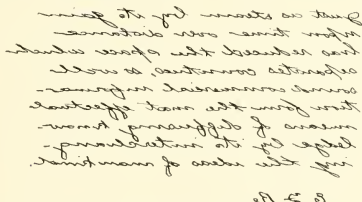 Just as steam by its gain
upon time over distance
has reduced the space which
separates countries, so will
sound commercial informa-
tion form the most effectual
means of diffusing know-
ledge by its interchang-
ing the ideas of mankind.